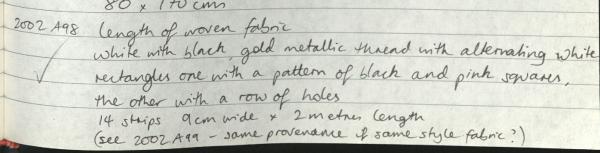 80 x 170 cms
2002 A98 length of woven fabric
white with black, gold metallic thread with alternating white
rectangles one with a pattern of black and pink squares,
the other with a row of holes
14 strips 9cm wide x 2 metres length
(see 2002 A99 - same provenance if same style fabric?)